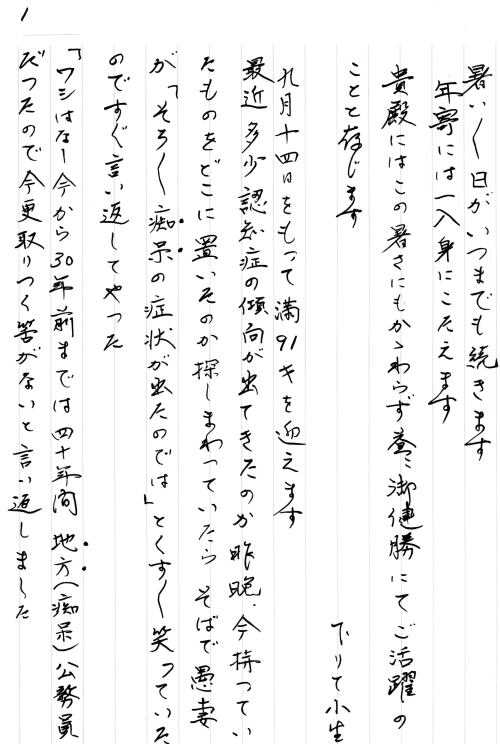 1
暑い〱日がいつまでも続きます
年寄には一入身にこたえます
貴殿にはこの暑さにもかゝわらず益々御健勝にてご活躍の
ことと存じます
下りて小生
九月十四日をもって満91才を迎えます
最近多少認知症の傾向が出てきたのか昨晩、今持ってい
たものをどこに置いたのか探しまわっていたらそばで愚妻
が「そろ〱痴呆の症状が出たのでは」とくす〱笑っていた
のですぐ言い返してやった
「ワシはなー今から30年前までは四十年間地方(痴呆)公務員
だったので今更取りつく筈がないと言い返しました